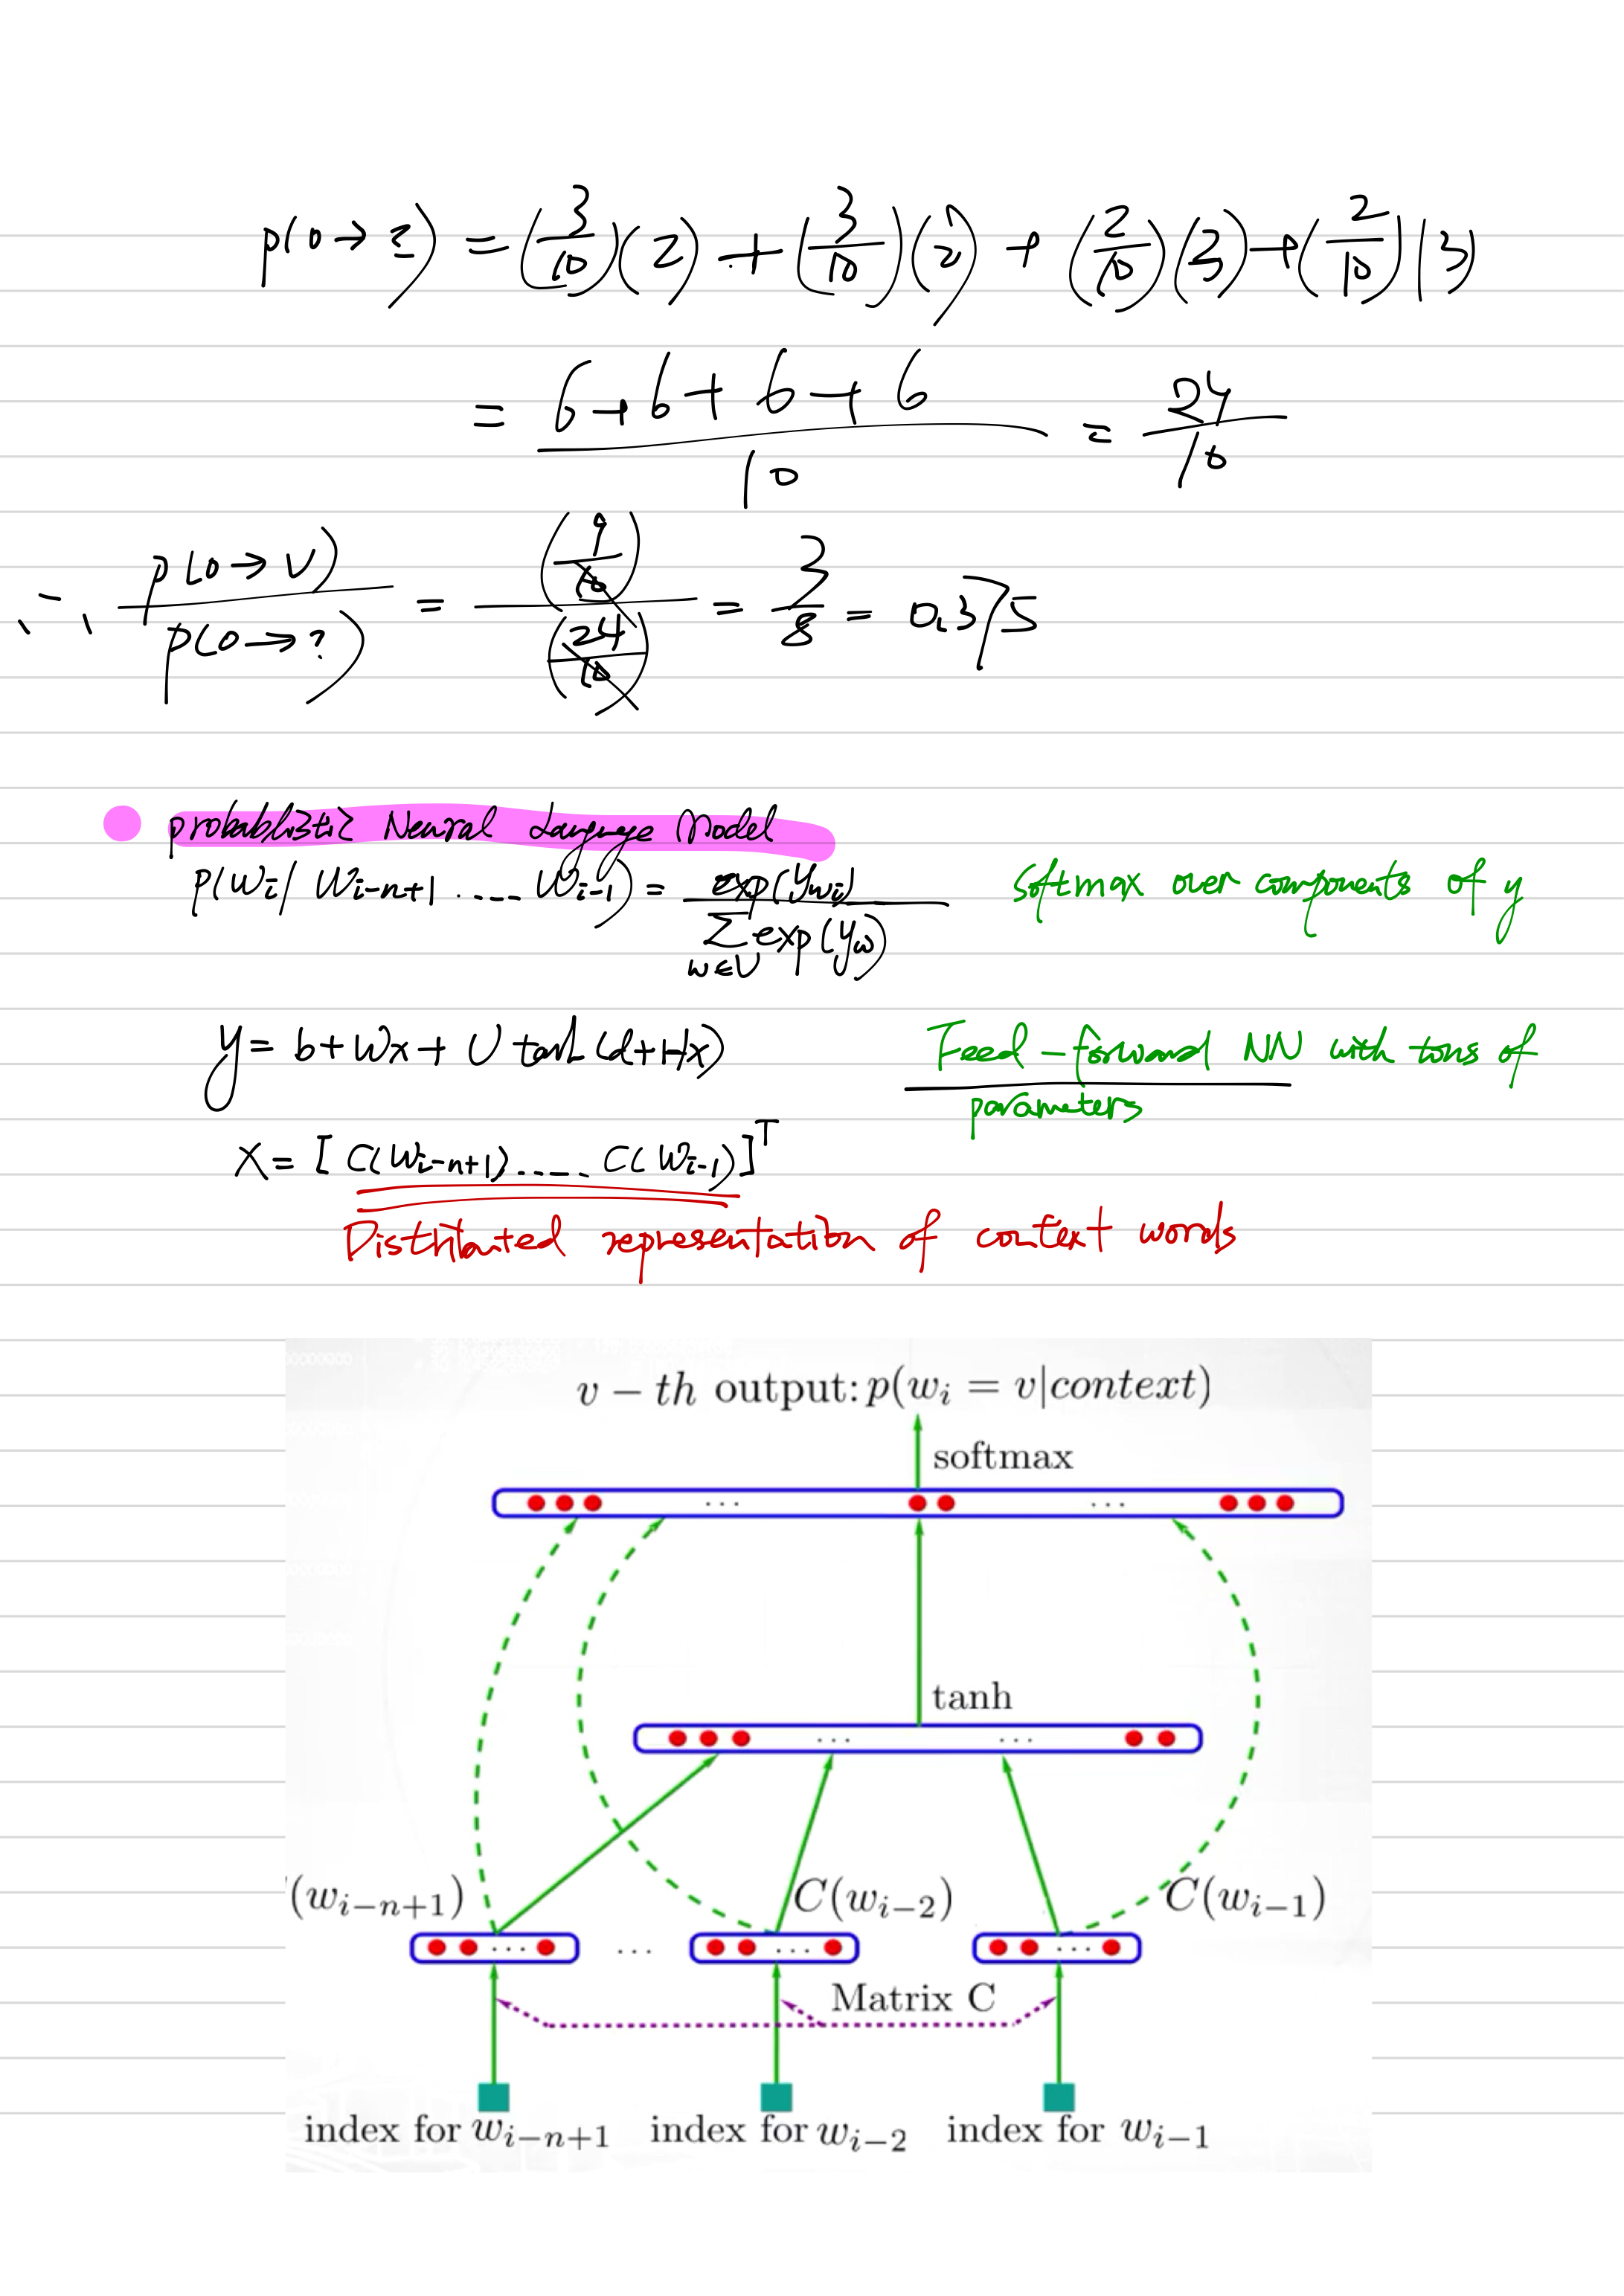 p(o → ?) = (3/10)(2) + (3/10)(2) + (2/10)(3) + (2/10)(3)
= (6+6+6+6)/10 = 24/10
∴ p(o→v)/p(o→?) = (9/10)/(24/10) = 3/8 = 0.375
probablistic Neural Language Model
p(wi | Wi-n+1 ..... Wi-1) = exp(ywi) / Σw∈V exp(yw) Softmax over components of y
y = b+Wx + U tanh (d+Hx) Feed-forward NN with tons of
parameters
X = [ C(Wi-n+1) ..... C(Wi-1) ]T
Distributed representation of context words
v − th output: p(wi = v|context)
softmax
... ...
tanh
... ...
(wi−n+1) C(wi−2) C(wi−1)
... ... ... ...
Matrix C
index for wi−n+1 index for wi−2 index for wi−1